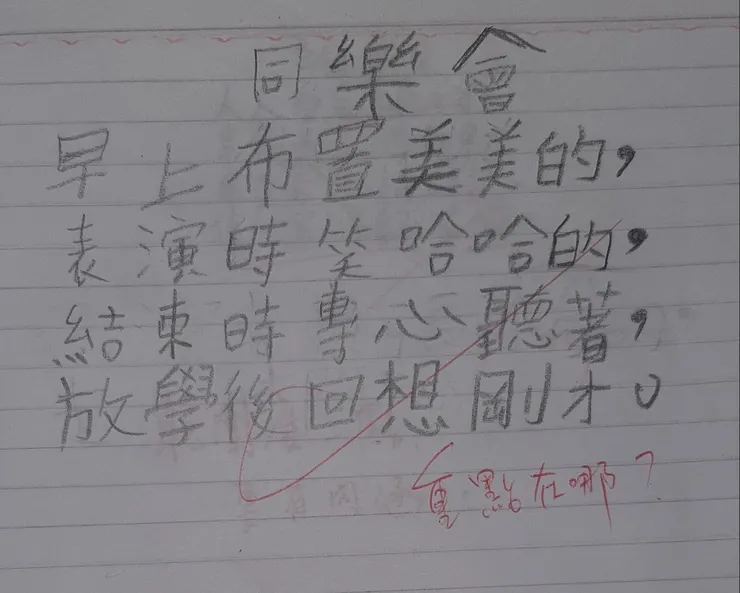 同樂會
早上布置美美的，
表演時笑哈哈的，
結束時專心聽著，
放學後回想剛才。
重點在哪？